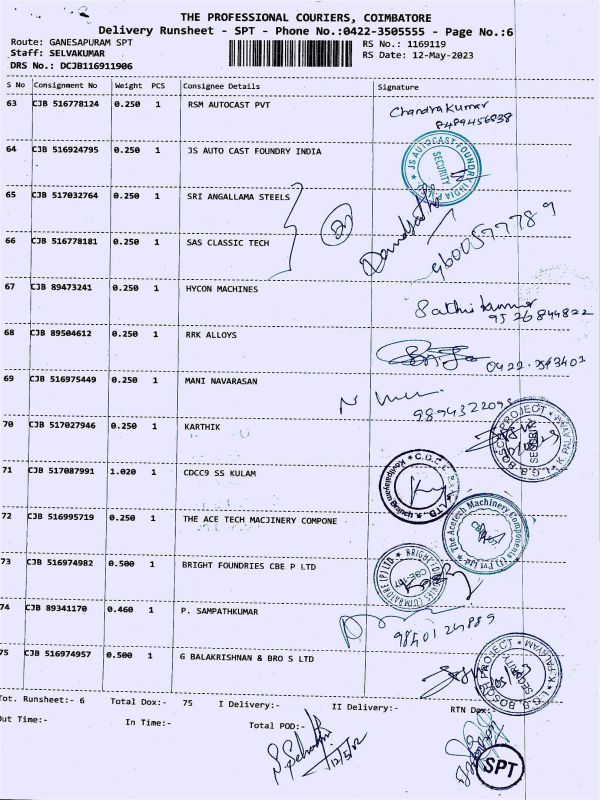 THE PROFESSIONAL COURIERS, COIMBATORE
Delivery Runsheet - SPT - Phone No.:0422-3505555 - Page No.:6
Route: GANESAPURAM SPT
RS No.: 1169119
Staff: SELVAKUMAR
RS Date: 12-May-2023
DRS No.: DCJB116911906
S No Consignment No Weight PCS Consignee Details Signature
63 CJB 516778124 0.250 1 RSM AUTOCAST PVT
Chandrakumar
64 CJB 516924795 0.250 1 JS AUTO CAST FOUNDRY INDIA
JS AUTOCAST FOUNDRY INDIA
SECURITY
65 CJB 517032764 0.250 1 SRI ANGALLAMA STEELS
66 CJB 516778181 0.250 1 SAS CLASSIC TECH
9600577789
67 CJB 89473241 0.250 1 HYCON MACHINES
Sathis kumar
9526844822
68 CJB 89504612 0.250 1 RRK ALLOYS
69 CJB 516975449 0.250 1 MANI NAVARASAN
9894322095
70 CJB 517027946 0.250 1 KARTHIK
L.G.B. BOSCH PROJECT
SECURITY
71 CJB 517087991 1.020 1 CDCC9 SS KULAM
72 CJB 516995719 0.250 1 THE ACE TECH MACJINERY COMPONE
The Acetech Machinery Components (I) Pvt Ltd
73 CJB 516974982 0.500 1 BRIGHT FOUNDRIES CBE P LTD
74 CJB 89341170 0.460 1 P. SAMPATHKUMAR
75 CJB 516974957 0.500 1 G BALAKRISHNAN & BRO S LTD
L.G.B. BOSCH PROJECT
SECURITY
Tot. Runsheet:- 6 Total Dox:- 75 I Delivery:- II Delivery:- RTN Dox:-
Out Time:- In Time:- Total POD:-
SPT